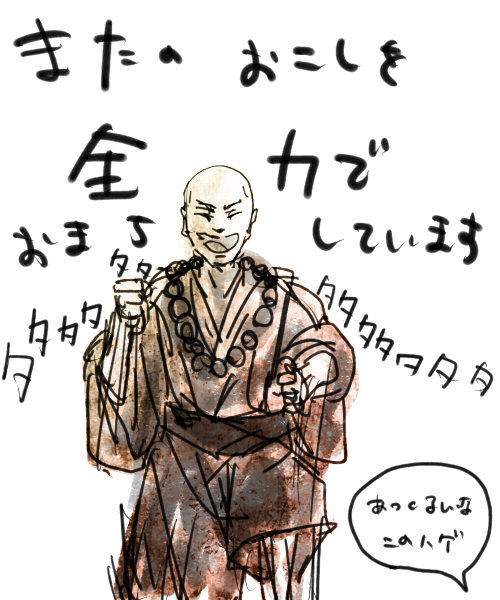 またの おこしを
全力で
おまちしています
タタ
タタタタ
タタタタタタタ
あつくるしいな
このハゲ